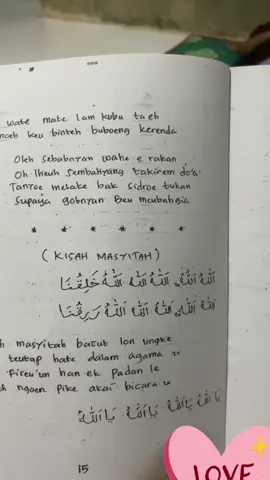 wate mate lam kubu ta eh
keu binteh buboeng kerenda
Oleh sebabnyan wahe e rakan
Oh lheuh sembahyang takirem do'a
Tanroe melake bak sidroe tuhan
Supaya gobnyan Beu meubahgia
* * * * * *
( KISAH MASYITAH )
اَللهُ اَللهُ، اَللهُ اَللهُ اَللهُ خَلِقُنَا
اَللهُ اَللهُ، اَللهُ اَللهُ اَللهُ رَزِقُنَا
masyitah batut lon ungke
teutap hate dalam agama
Fireu'un han ek padan le
ngoen pike akai bicara
يَا اَللهُ يَا اَللهُ، يَا اَللهُ، يَا اَللهُ
15
LOVE